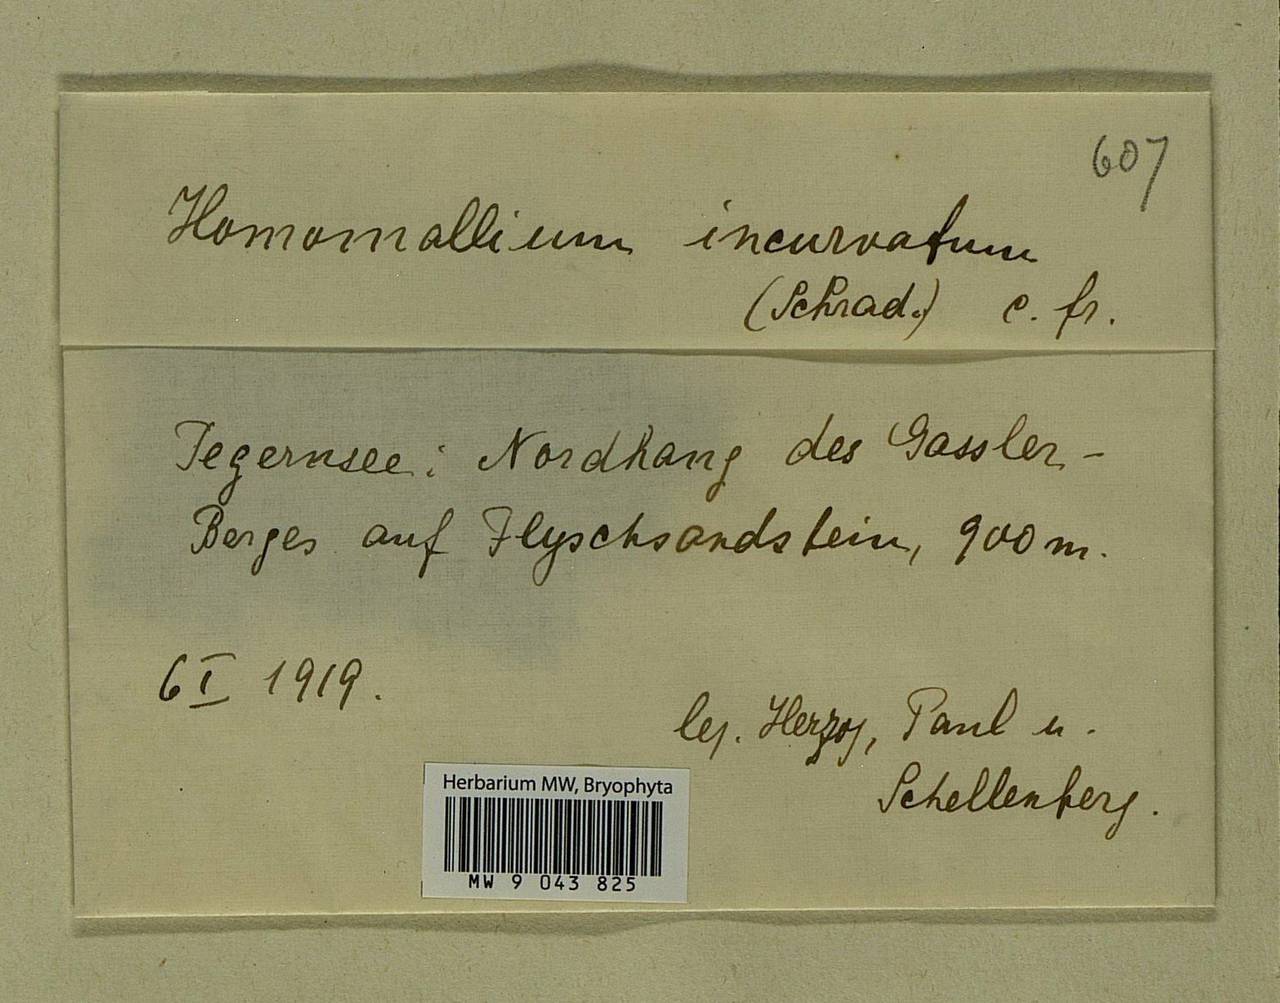 607
Homomallium incurvatum
(Schrad.) c. fr.
Tegernsee: Nordhang des Gassler-
Berges auf Flyschsandstein, 900 m.
6 I 1919.
leg. Herzog, Paul u.
Schellenberg.
Herbarium MW, Bryophyta
MW 9 043 825